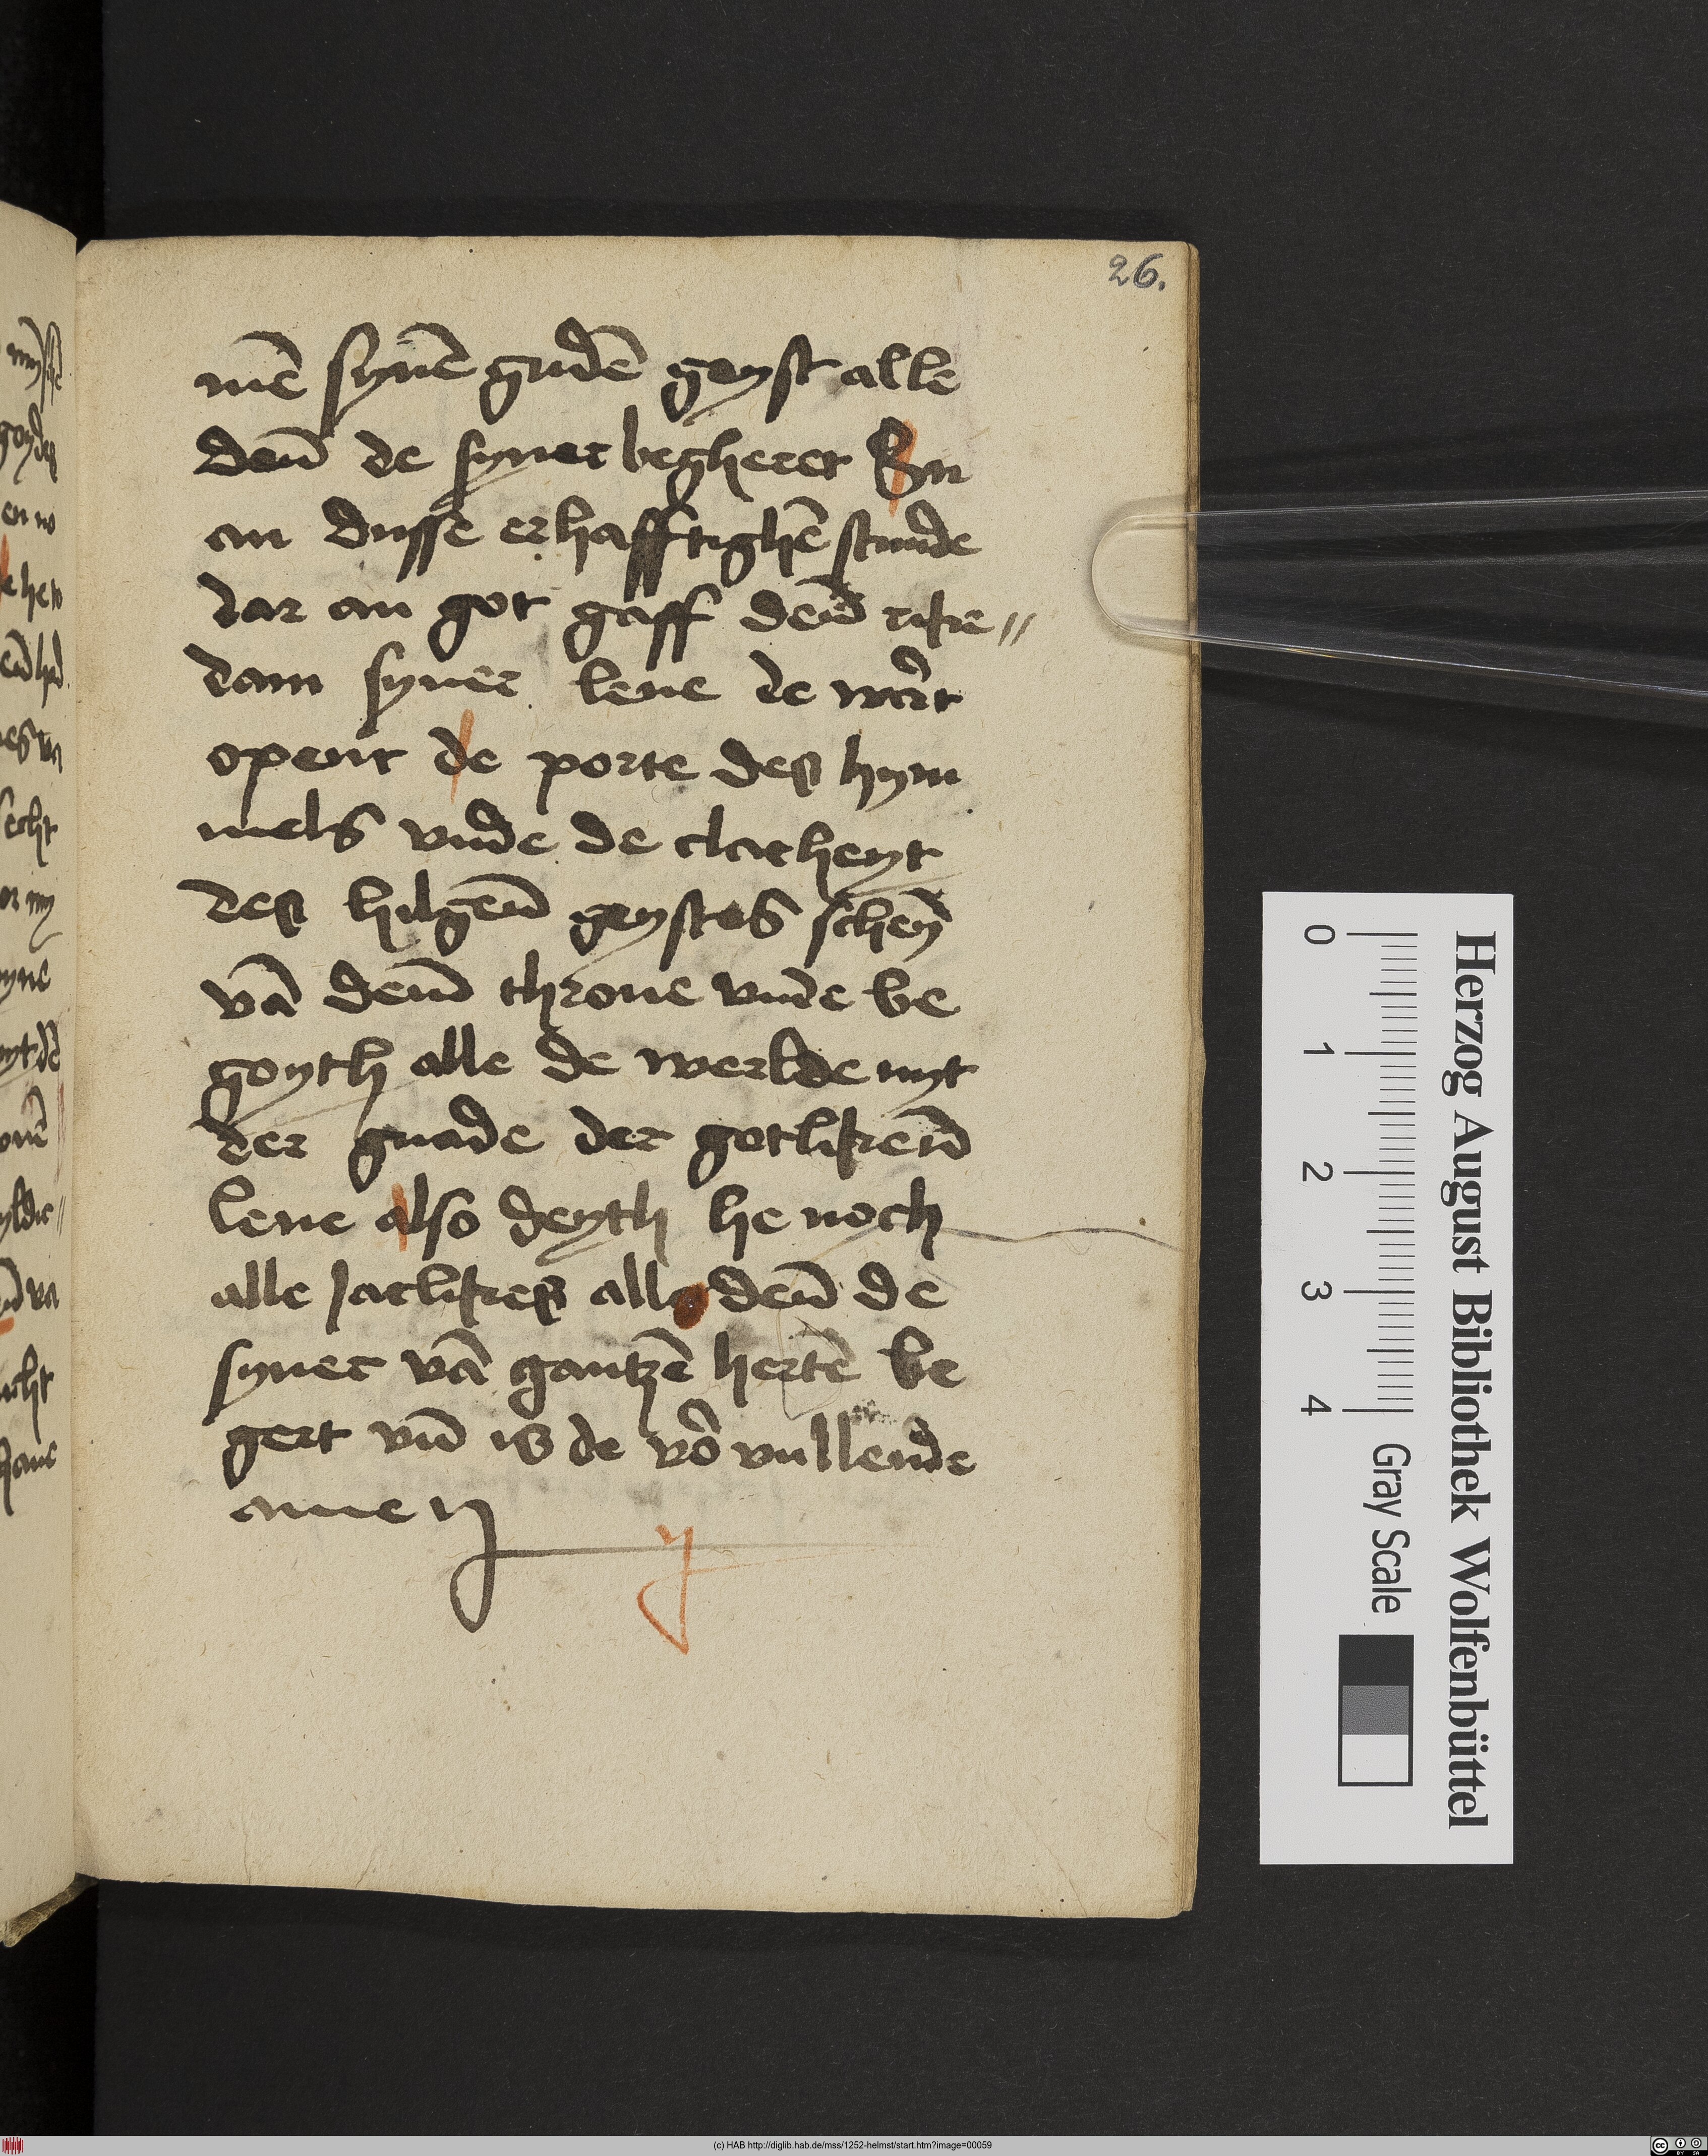 26.
mē synē gudē geyst alle
deñ de syner begheret En
an dusse erhafftighē stunde
dar an got gaff deñ rike〃
dam syner leue de wert
opent de porte des hym
mels vnde de clarheyt
des hilgeñ geystes scheȳ
vā deñ throne vnde be
goyth alle de werlde myt
der gnade der gotlikeñ
leue also deyth he noch
alle jarlikes alle deñ de
syner vā gantzē hertē be
gert vñ is de vor vullende
amen
Herzog August Bibliothek Wolfenbüttel
0 1 2 3 4 Gray Scale
(c) HAB http://diglib.hab.de/mss/1252-helmst/start.htm?image=00059